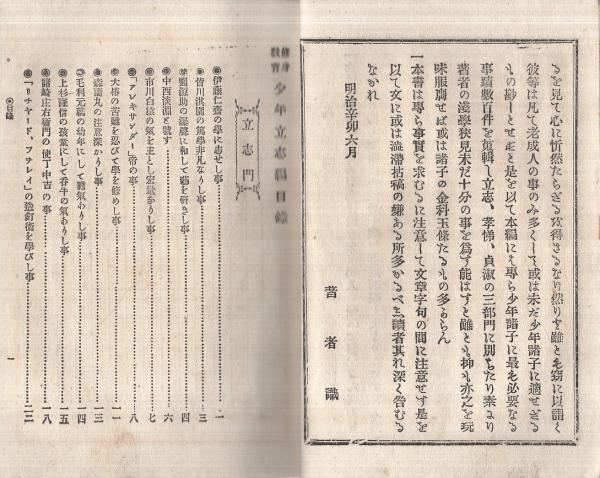 るを見て心に忻然たらざるを得ざるなり然りと雖とも竊に以謂く
彼等は凡て老成人の事のみ多くして或は未だ少年諸子に適せざる
もの尠しとせず是を以て本編には專ら少年諸子に最も必要なる
事蹟數百件を蒐輯し立志、孝悌、貞淑の三部門に別ちたり素より
著者の淺學狹見未だ十分の事を為す能はずと雖とも抑も亦之を玩
味服膺せば或は諸子の金科玉條たるもの多からん
一本書は專ら事實を求むるに注意して文章字句の間に注意せず是を
以て文に或は澁滯拈稿の嫌ある所多かるべし讀者其れ深く咎むる
なかれ
明治辛卯六月
著者識
修身教育 少年立志編目錄
立志門
◉伊藤仁齋の學に志せし事 一
◉皆川淇園の篤學非凡なりし事 三
◉源助の 四
◉中西淡淵と號す 六
◉市川白猿の氣を主とし宏量なりし事 七
◉「アレキサンダー」帝の事 八
◉大椿の苦難を忍びて學を修めし事 一一
◉森蘭丸の注意深かりし事 一三
◉毛利元就の幼年にして膽氣ありし事 一四
◉上杉謙信の孩童にして呑牛の氣ありし事 一五
◉諸崎庄右衛門の使丁中吉の事 一八
◉「リチヤード、フオレイ」の造釘術を學びし事 二二
◉目錄
一